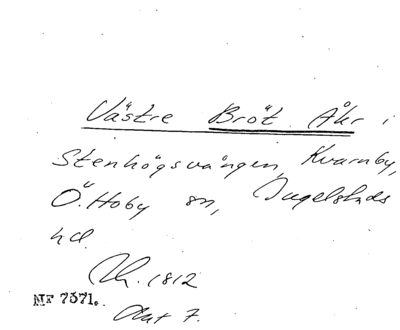 Västre Bröt Åkr i
Stenhögsvången, Kvarnby,
Ö. Hoby sn, Ingelstads
hd.
Kh. 1812
Akt 7.
MF 7371.